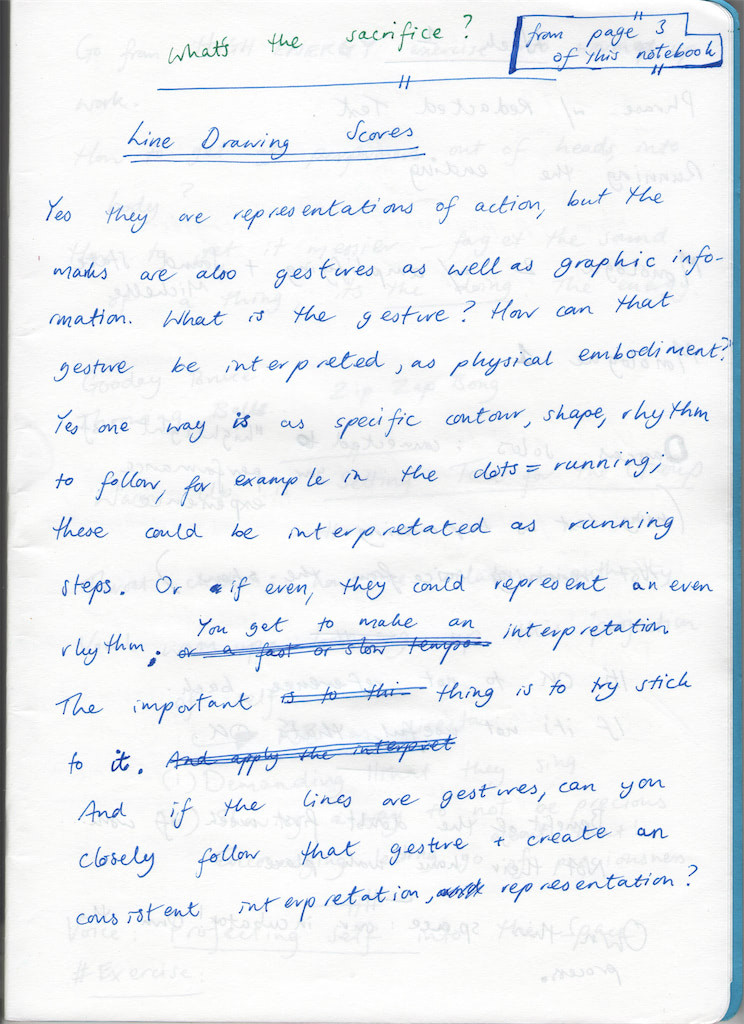 What's the sacrifice?
from page 3
of this notebook
Line Drawing Scores
Yes they are representations of action, but the
marks are also gestures as well as graphic info-
mation. What is the gesture? How can that
gesture be interpreted, as physical embodiment?
Yes one way is as specific contour, shape, rhythm
to follow, for example in the dots = running;
these could be interpretated as running
steps. Or if even, they could represent an even
You get to make an
rhythm. or a fast or slow tempo interpretation
The important is to thi thing is to try stick
to it. And apply the interpret
And if the lines are gestures, can you
closely follow that gesture + create an
consistent interpretation, representation?